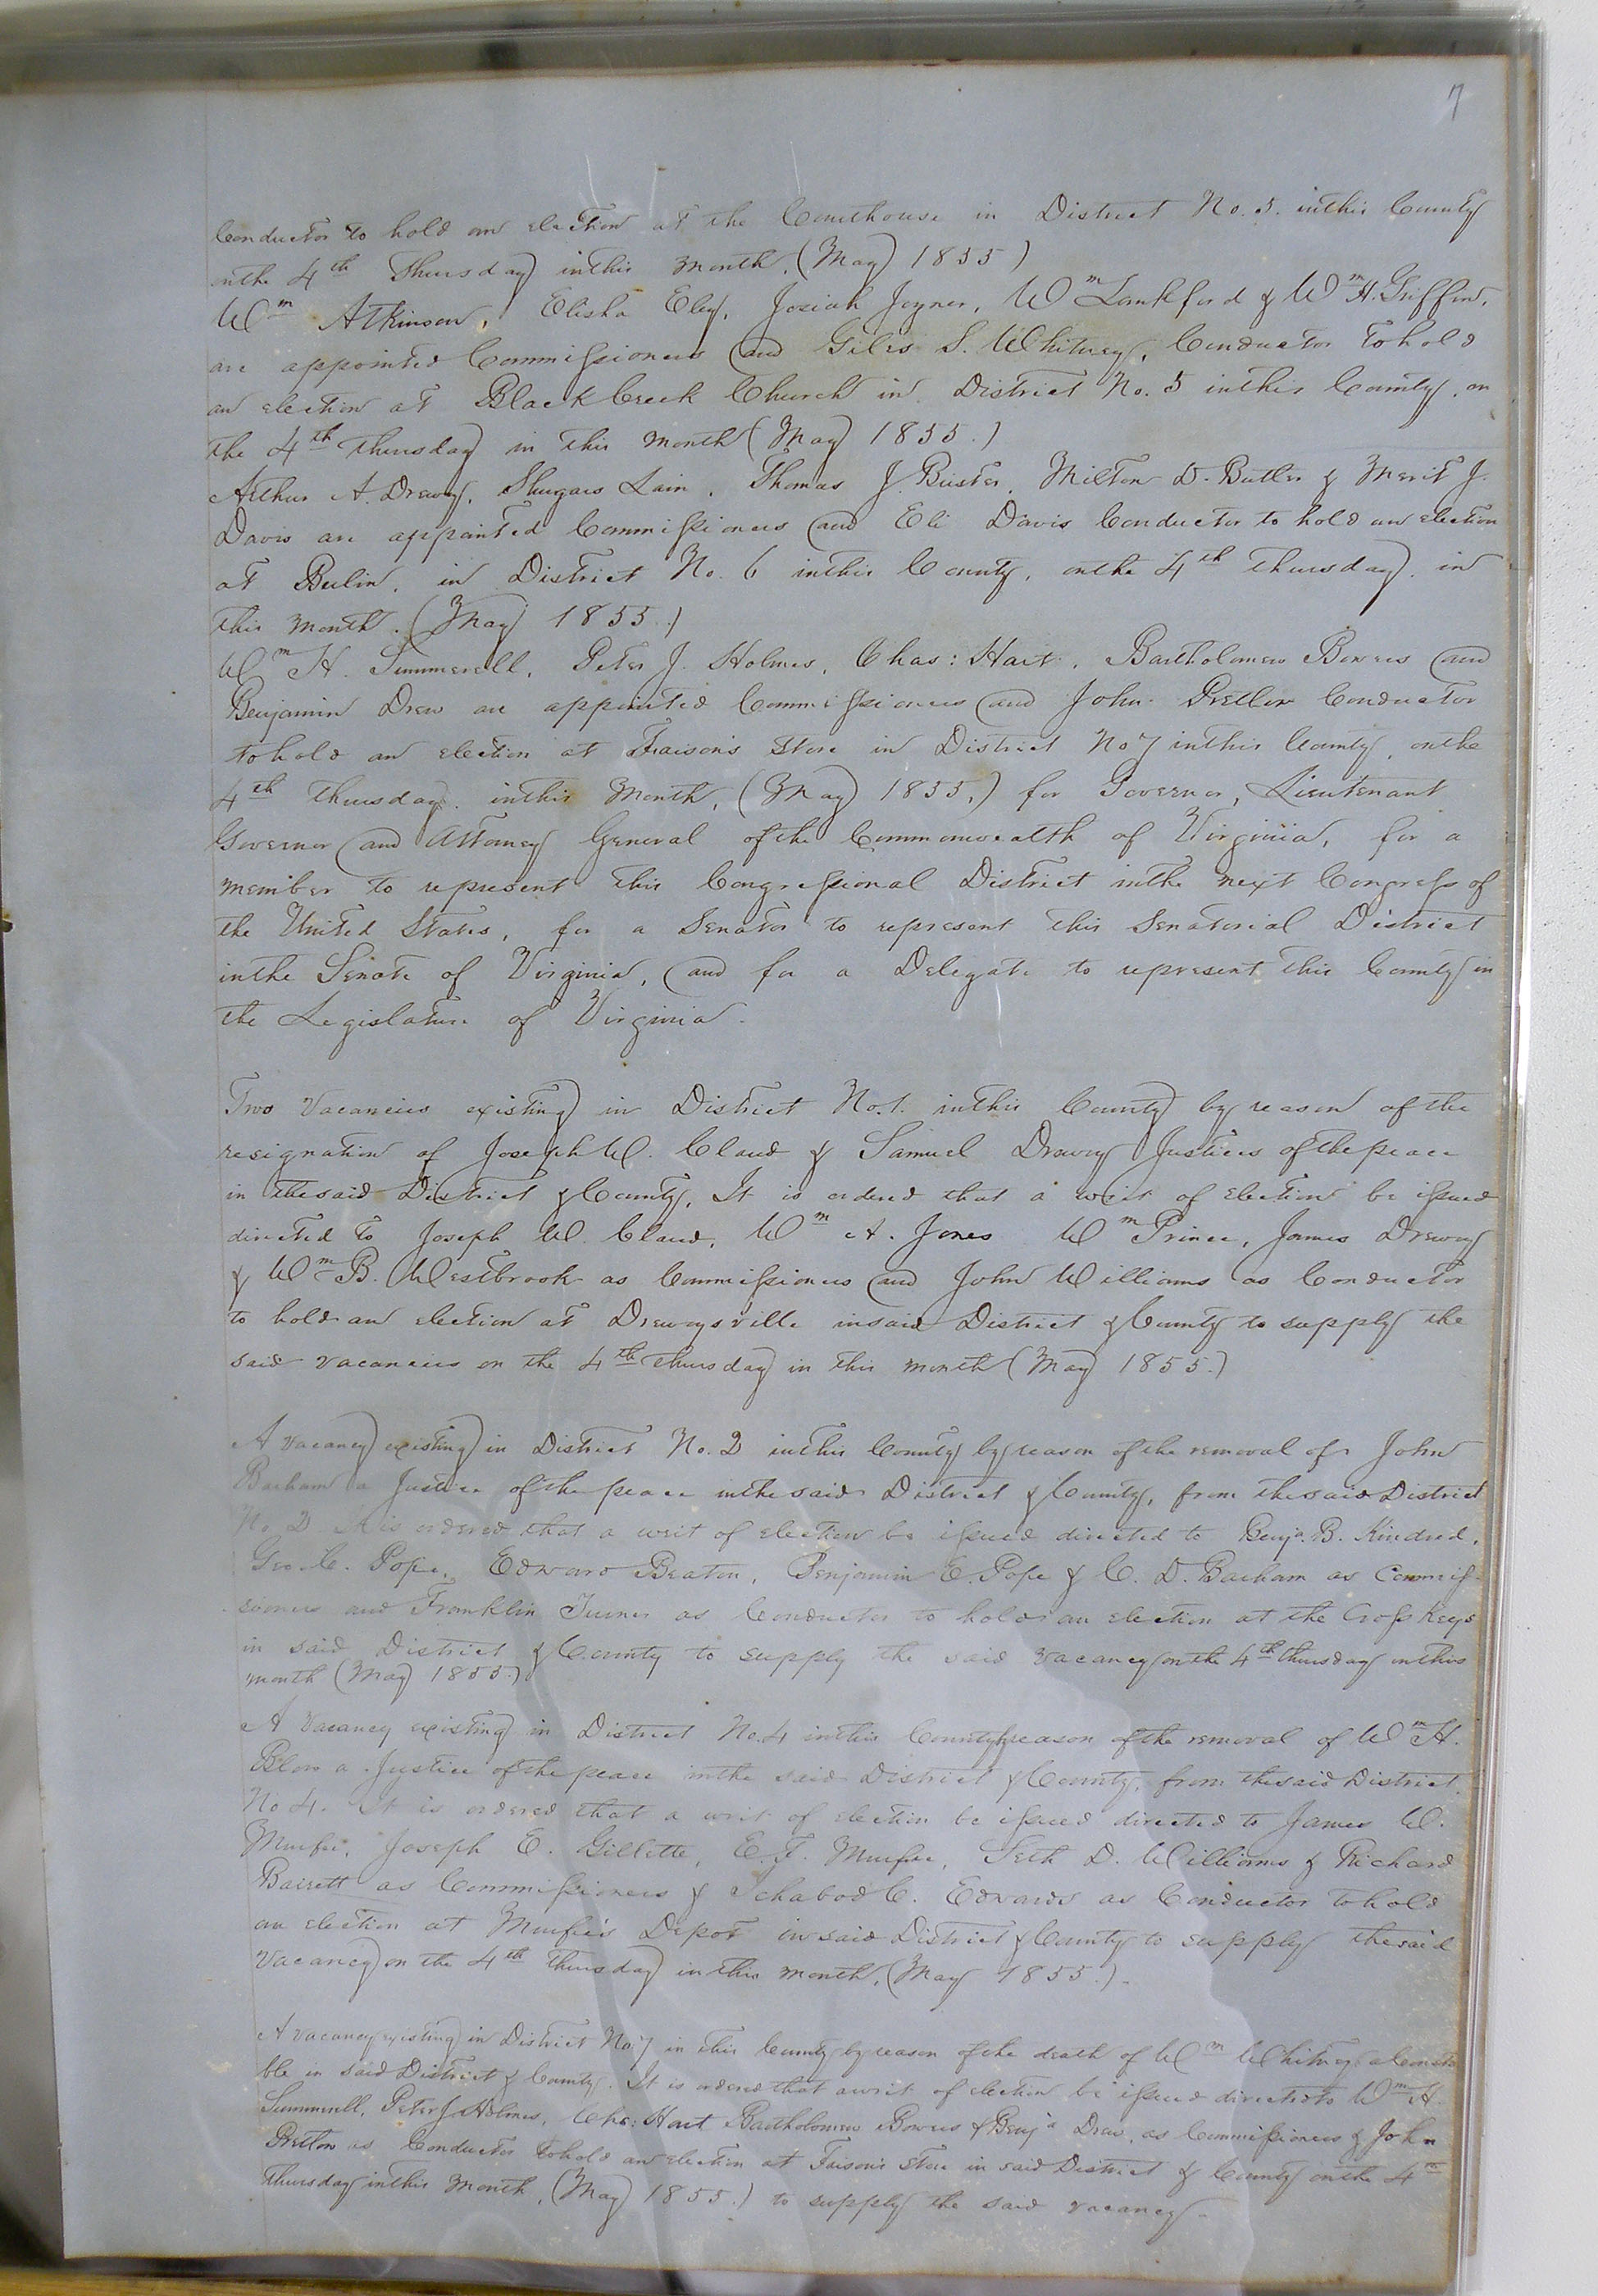 7
Conductor to hold an election at the Courthouse in District No. 5. in this County
on the 4th Thursday in this month, (May 1855)
Wm Atkinson, Elisha Eley, Josiah Joyner, Wm Lankford & Wm H. Griffin,
are appointed Commissioners and Giles S. Whitney, Conductor to hold
an election at Black Creek Church in District No. 5 in this County, on
the 4th thursday in this month (May 1855.)
Arthur A. Drewry, Shugars Lain, Thomas J. Bister, Milton D. Butler & Merit J.
Davis are appointed Commissioners and Eli Davis Conductor to hold an election
at Berlin, in District No. 6 in this County, on the 4th thursday in
this month. (May 1855.)
Wm H. Summerell, Peter J. Holmes, Chas: Hart, Bartholomew Bowers and
Benjamin Drew are appointed Commissioners and John Pretlow Conductor
to hold an election at Fraison's Store in District No 7 in this County, on the
4th thursday in this Month, (May 1855,) for Governor, Lieutenant
Governor and Attorney General of the Commonwealth of Virginia, for a
member to represent this Congressional District in the next Congress of
the United States, for a Senator to represent this Senatorial District
in the Senate of Virginia, and for a Delegate to represent this County in
the Legislature of Virginia.
Two Vacancies existing in District No. 1. in this County by reason of the
resignation of Joseph W. Claud & Samuel Drewry Justices of the peace
in the said District & County, It is ordered that a writ of election be issued
directed to Joseph W. Claud, Wm A. Jones Wm Prince, James Drewry
& Wm B. Westbrook as Commissioners and John Williams as Conductor
to hold an election at Drewrysville in said District & County to supply the
said vacancies on the 4th thursday in this month (May 1855.)
A vacancy existing in District No. 2 in this County by reason of the removal of John
Barham a Justice of the peace in the said District & County, from the said District
No. 2 It is ordered that a writ of election be issued directed to Benja. B. Kindred,
Geo. C. Pope, Edward Beaton, Benjamin E. Pope & C. D. Barham as Commis-
sioners and Franklin Turner as Conductor to hold an election at the Cross Keys
in said District & County to supply the said vacancy on the 4th thursday in this
month (May 1855.)
A Vacancy existing in District No. 4 in this County by reason of the removal of Wm H.
Blow a Justice of the peace in the said District & County, from the said District
No 4. It is ordered that a writ of election be issued directed to James W.
Murfee, Joseph E. Gillette, E. T. Murfee, Seth D. Williams & Richard
Barrett as Commissioners & Ichabod C. Edwards as Conductor to hold
an election at Murfee's Depot in said District & County to supply the said
Vacancy on the 4th thursday in this month, (May 1855.).
A vacancy existing in District No. 7 in this County by reason of the death of Wm Whitney a Consta
ble in said District & County. It is ordered that a writ of election be issued directed to Wm H.
Summerell, Peter J. Holmes, Chs: Hart Bartholomew Bowers & Benja Drew, as Commissioners & John
Pretlow as Conductor to hold an election at Faison's Store in said District & County on the 4th
thursday in this Month, (May 1855.) to supply the said vacancy.